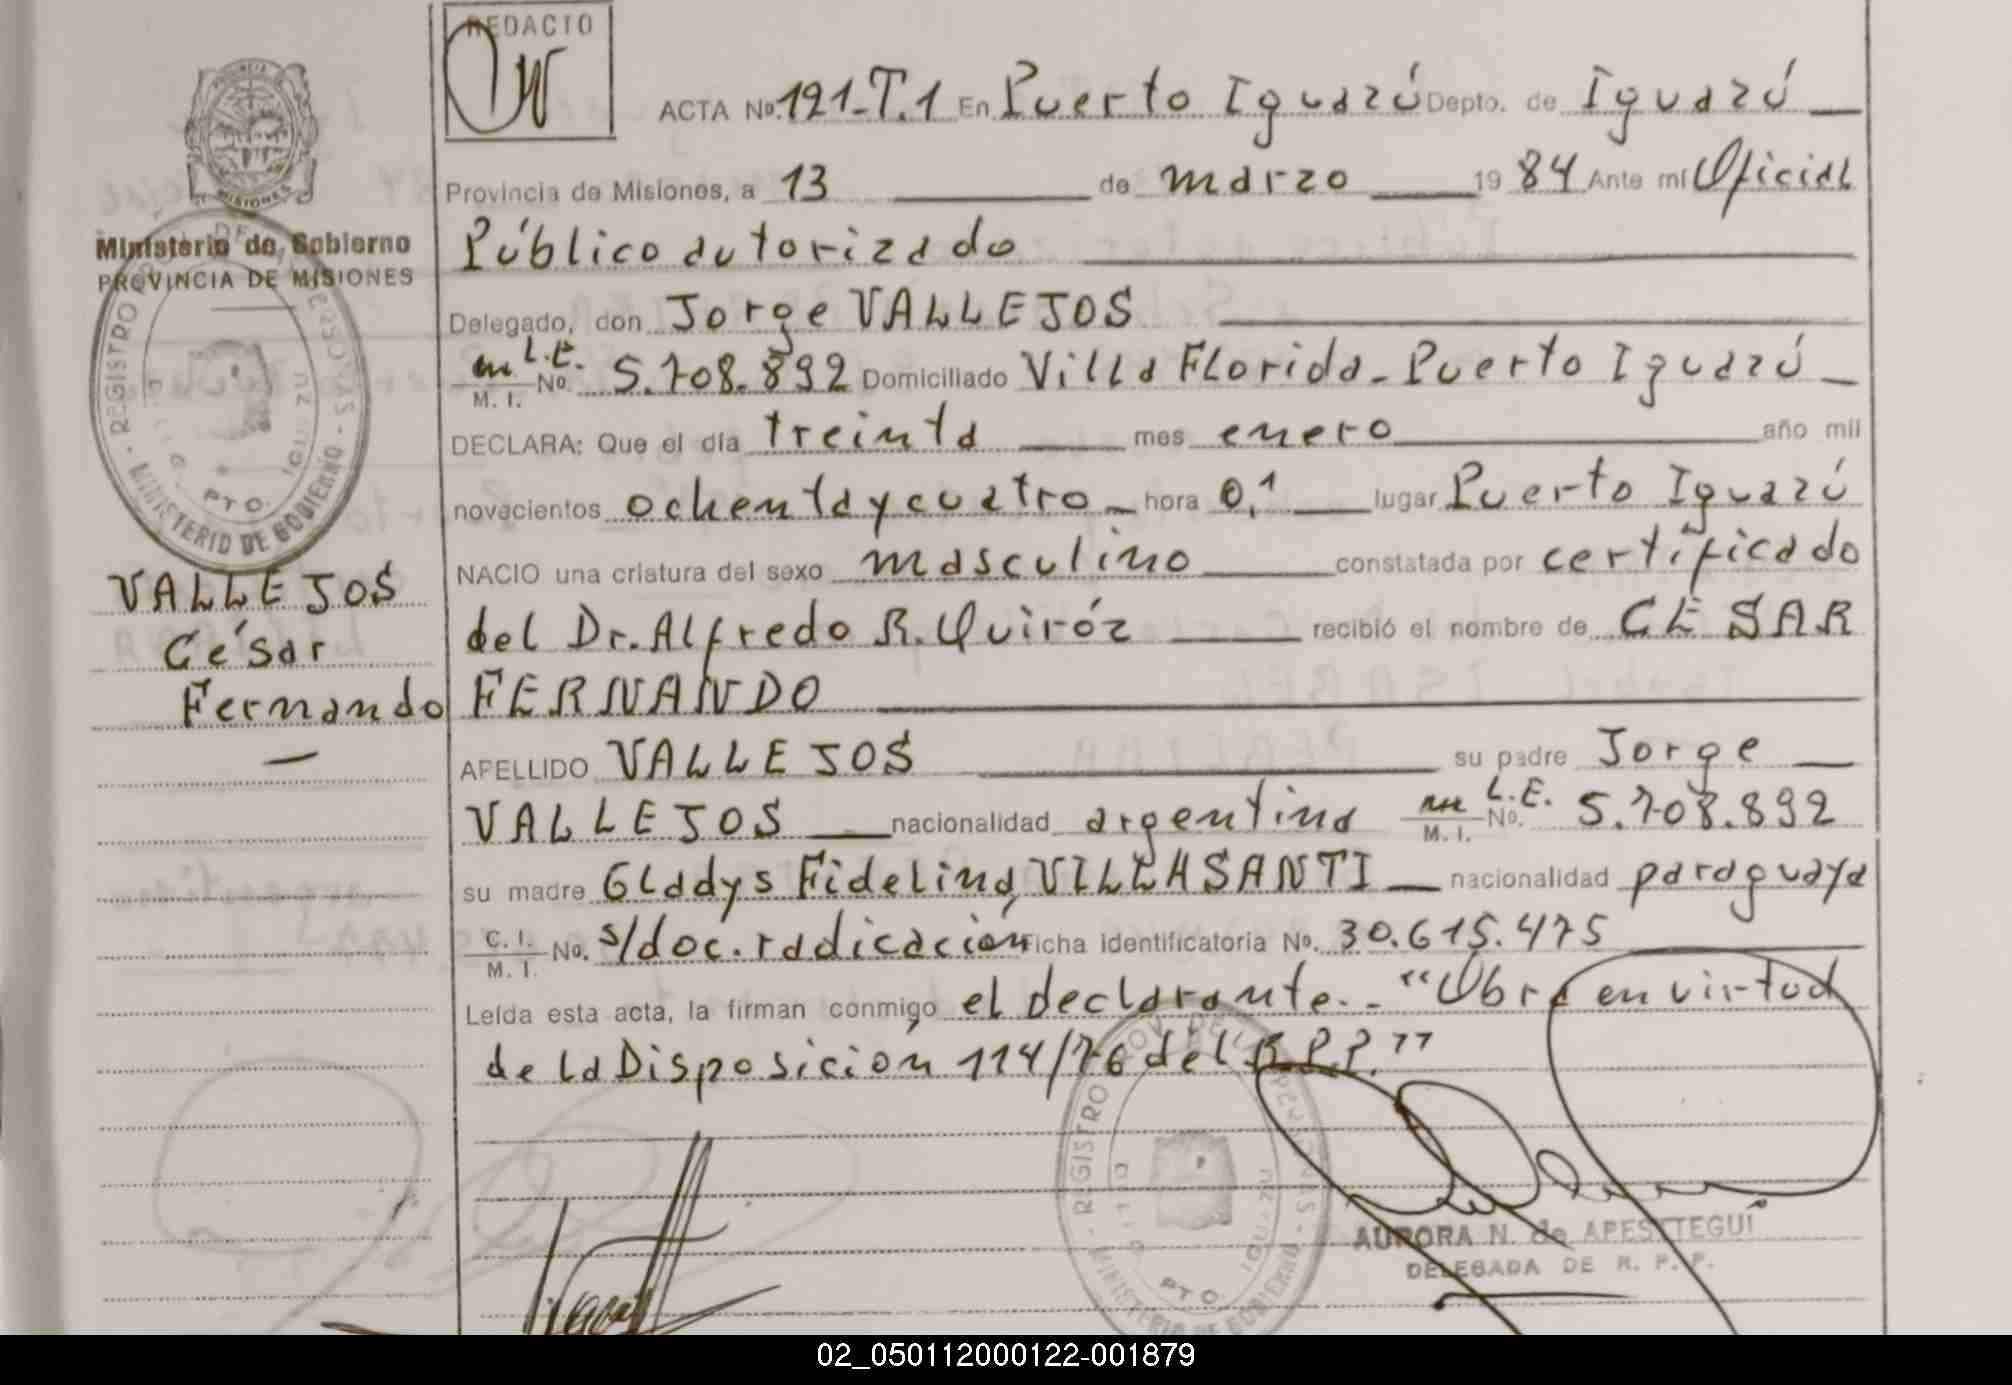 REDACTO
ACTA No. 121-T.1 En Puerto Iguazú Depto. de Iguazú
Provincia de Misiones, a 13 de marzo 19 84 Ante mí Oficial
Ministerio de Gobierno
PROVINCIA DE MISIONES
Público autorizado
Delegado, don Jorge VALLEJOS
L.E.
M. I. No. 5.708.892 Domiciliado Villa Florida-Puerto Iguazú
DECLARA: Que el día treinta mes enero año mil
novecientos ochenta y cuatro hora 0,1 lugar Puerto Iguazú
NACIO una criatura del sexo masculino constatada por certificado
del Dr. Alfredo R. Quiróz recibió el nombre de CESAR
FERNANDO
VALLEJOS
César
Fernando
APELLIDO VALLEJOS su padre Jorge
VALLEJOS nacionalidad argentina L.E. M. I. No. 5.708.892
su madre Gladys Fidelina VILLASANTI nacionalidad paraguaya
C. I. M. I. No. s/doc. radicación Ficha identificatoria No. 30.615.475
Leída esta acta, la firman conmigo el declarante.- "Obra en virtud
de la Disposición 114/76 del R.P.P."
REGISTRO PROV. DE LAS PERSONAS
MINISTERIO DE GOBIERNO
PTO. IGUAZU
AURORA N. de APESTEGUI
DELEGADA DE R. P. P.
02_050112000122-001879